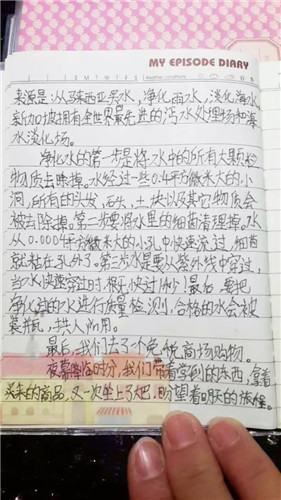 MY EPISODE DIARY
S M T W T F S
来源是:从马来西亚买水,净化雨水,淡化海水。
新加坡拥有全世界最先进的污水处理场和海
水淡化场。
净化水的第一步是将水中的所有大颗粒
物质去除掉。水经过一些0.4平方微米大的小
洞,所有的头发、石头、土块以及其它物质会
被去除掉。第二步要将水里的细菌清理掉。水
从0.0004平方微米大的小孔中快速流过,细菌
就粘在孔外了。第三步水是要从紫外线中穿过,
当水快速穿过时,极快过1秒)最后,要把
净化过的水进行质量检测,合格的水会被
装瓶,供人们用。
最后,我们去了个免税商场购物。
夜幕降临时分,我们带着学到的东西,拿着
买来的商品,又一次坐上了大巴,盼望着明天的旅程。